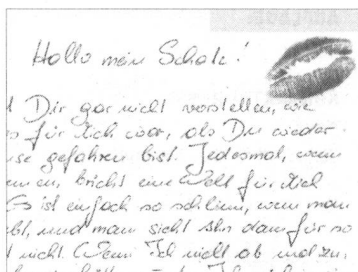 Hallo mein Schatz!
Dir gar nicht vorstellen, wie
für Dich war, als Du wieder
se gefahren bist. Jedesmal, wenn
en, bricht eine Welt für
ist einfach so schlimm, wenn man
bt, und man sieht Ihn dann für so
nicht. Wenn Ich nicht ab und zu